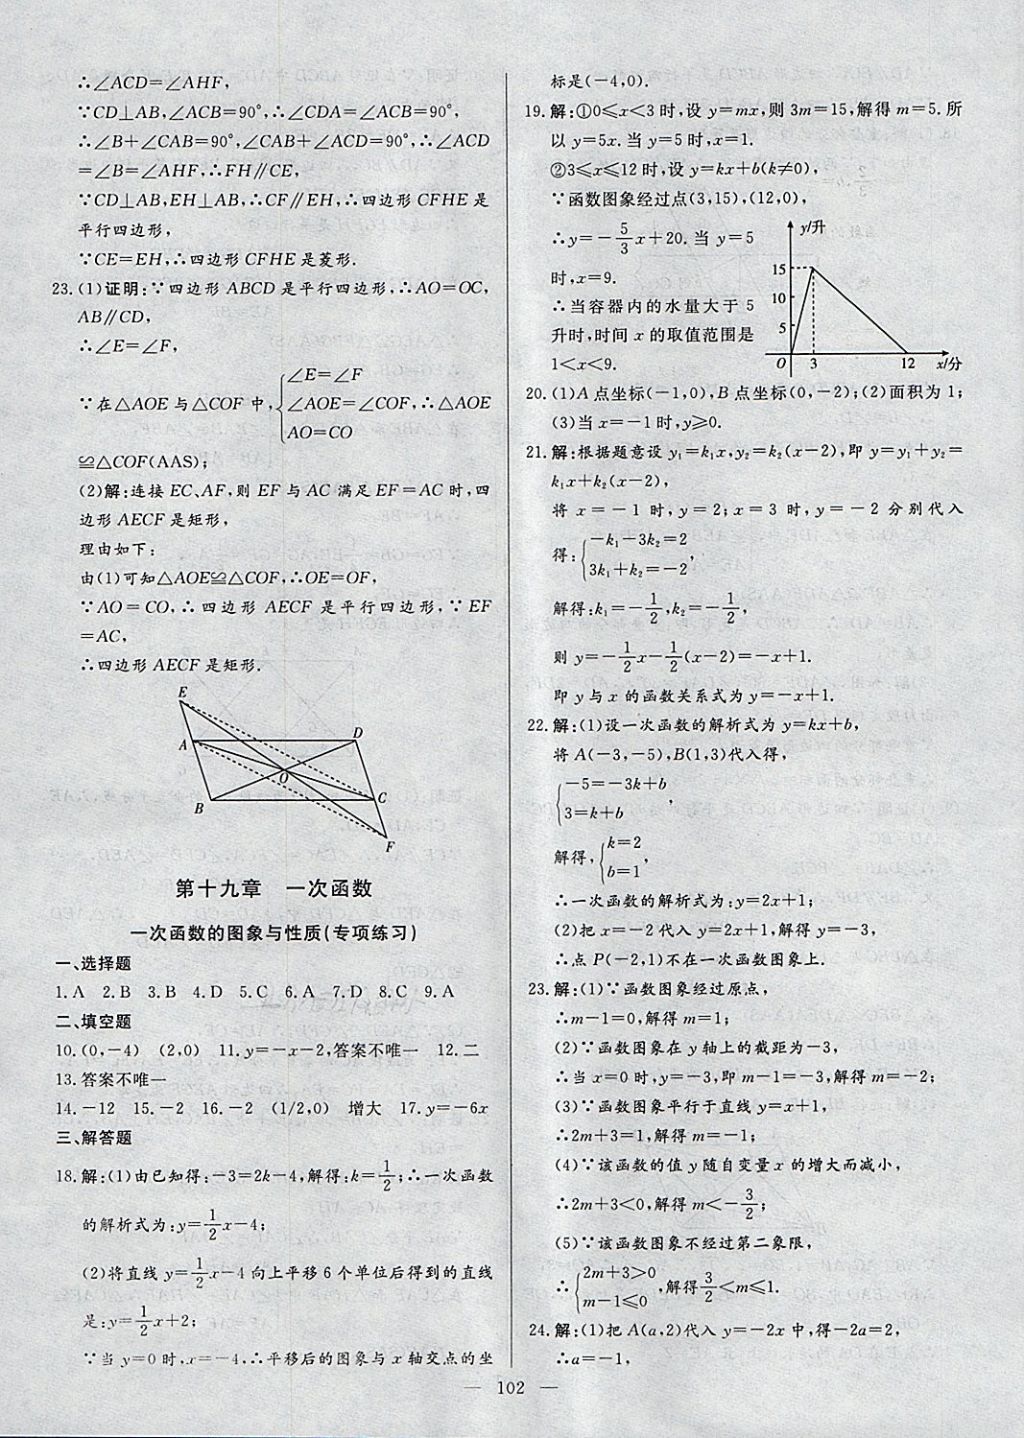 ∴∠ACD=∠AHF,
∵CD⊥AB,∠ACB=90°,∴∠CDA=∠ACB=90°,
∴∠B+∠CAB=90°,∠CAB+∠ACD=90°,∴∠ACD
=∠B=∠AHF,∴FH∥CE,
∵CD⊥AB,EH⊥AB,∴CF∥EH,∴四边形 CFHE 是
平行四边形,
∵CE=EH,∴四边形 CFHE 是菱形.
23.(1)证明:∵四边形 ABCD 是平行四边形,∴AO=OC,
AB∥CD,
∴∠E=∠F,
∵在△AOE 与△COF 中,{∠E=∠F
∠AOE=∠COF,∴△AOE
AO=CO
≌△COF(AAS);
(2)解:连接 EC、AF,则 EF 与 AC 满足 EF=AC 时,四
边形 AECF 是矩形,
理由如下:
由(1)可知△AOE≌△COF,∴OE=OF,
∵AO=CO,∴四边形 AECF 是平行四边形,∵EF
=AC,
∴四边形 AECF 是矩形.
E
A
D
O
B
C
F
第十九章 一次函数
一次函数的图象与性质(专项练习)
一、选择题
1.A 2.B 3.B 4.D 5.C 6.A 7.D 8.C 9.A
二、填空题
10.(0,-4) (2,0) 11.y=-x-2,答案不唯一 12.二
13.答案不唯一
14.-12 15.-2 16.-2 (1/2,0) 增大 17.y=-6x
三、解答题
18.解:(1)由已知得:-3=2k-4,解得:k=1/2;∴一次函数
的解析式为:y=1/2x-4;
(2)将直线 y=1/2x-4 向上平移 6 个单位后得到的直线
是:y=1/2x+2;
∵当 y=0 时,x=-4,∴平移后的图象与 x 轴交点的坐
标是(-4,0).
19.解:①0≤x<3 时,设 y=mx,则 3m=15,解得 m=5.所
以 y=5x.当 y=5 时,x=1.
②3≤x≤12 时,设 y=kx+b(k≠0),
∵函数图象经过点(3,15),(12,0),
∴y=-5/3x+20.当 y=5
时,x=9.
∴当容器内的水量大于 5
升时,时间 x 的取值范围是
1<x<9.
y/升
15
10
5
O 3 12 x/分
20.(1)A 点坐标(-1,0),B 点坐标(0,-2);(2)面积为 1;
(3)当 x=-1 时,y≥0.
21.解:根据题意设 y₁=k₁x,y₂=k₂(x-2),即 y=y₁+y₂=
k₁x+k₂(x-2),
将 x=-1 时,y=2;x=3 时,y=-2 分别代入
得:{-k₁-3k₂=2
3k₁+k₂=-2,
解得:k₁=-1/2,k₂=-1/2,
则 y=-1/2x-1/2(x-2)=-x+1.
即 y 与 x 的函数关系式为 y=-x+1.
22.解:(1)设一次函数的解析式为 y=kx+b,
将 A(-3,-5),B(1,3)代入得,
{-5=-3k+b
3=k+b,
解得,{k=2
b=1,
∴一次函数的解析式为:y=2x+1;
(2)把 x=-2 代入 y=2x+1,解得 y=-3,
∴点 P(-2,1)不在一次函数图象上.
23.解:(1)∵函数图象经过原点,
∴m-1=0,解得 m=1;
(2)∵函数图象在 y 轴上的截距为-3,
∴当 x=0 时,y=-3,即 m-1=-3,解得 m=-2;
(3)∵函数图象平行于直线 y=x+1,
∴2m+3=1,解得 m=-1;
(4)∵该函数的值 y 随自变量 x 的增大而减小,
∴2m+3<0,解得 m<-3/2;
(5)∵该函数图象不经过第二象限,
∴{2m+3>0
m-1≤0,解得3/2<m≤1.
24.解:(1)把 A(a,2)代入 y=-2x 中,得-2a=2,
∴a=-1,
— 102 —